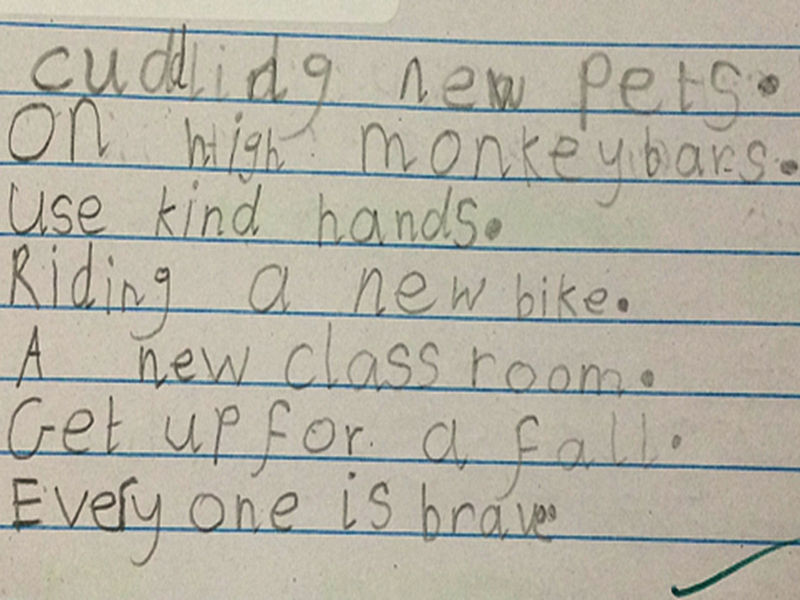 cuddling new pets.
On high monkeybars.
Use kind hands.
Riding a new bike.
A new class room.
Get up for a fall.
Every one is brave